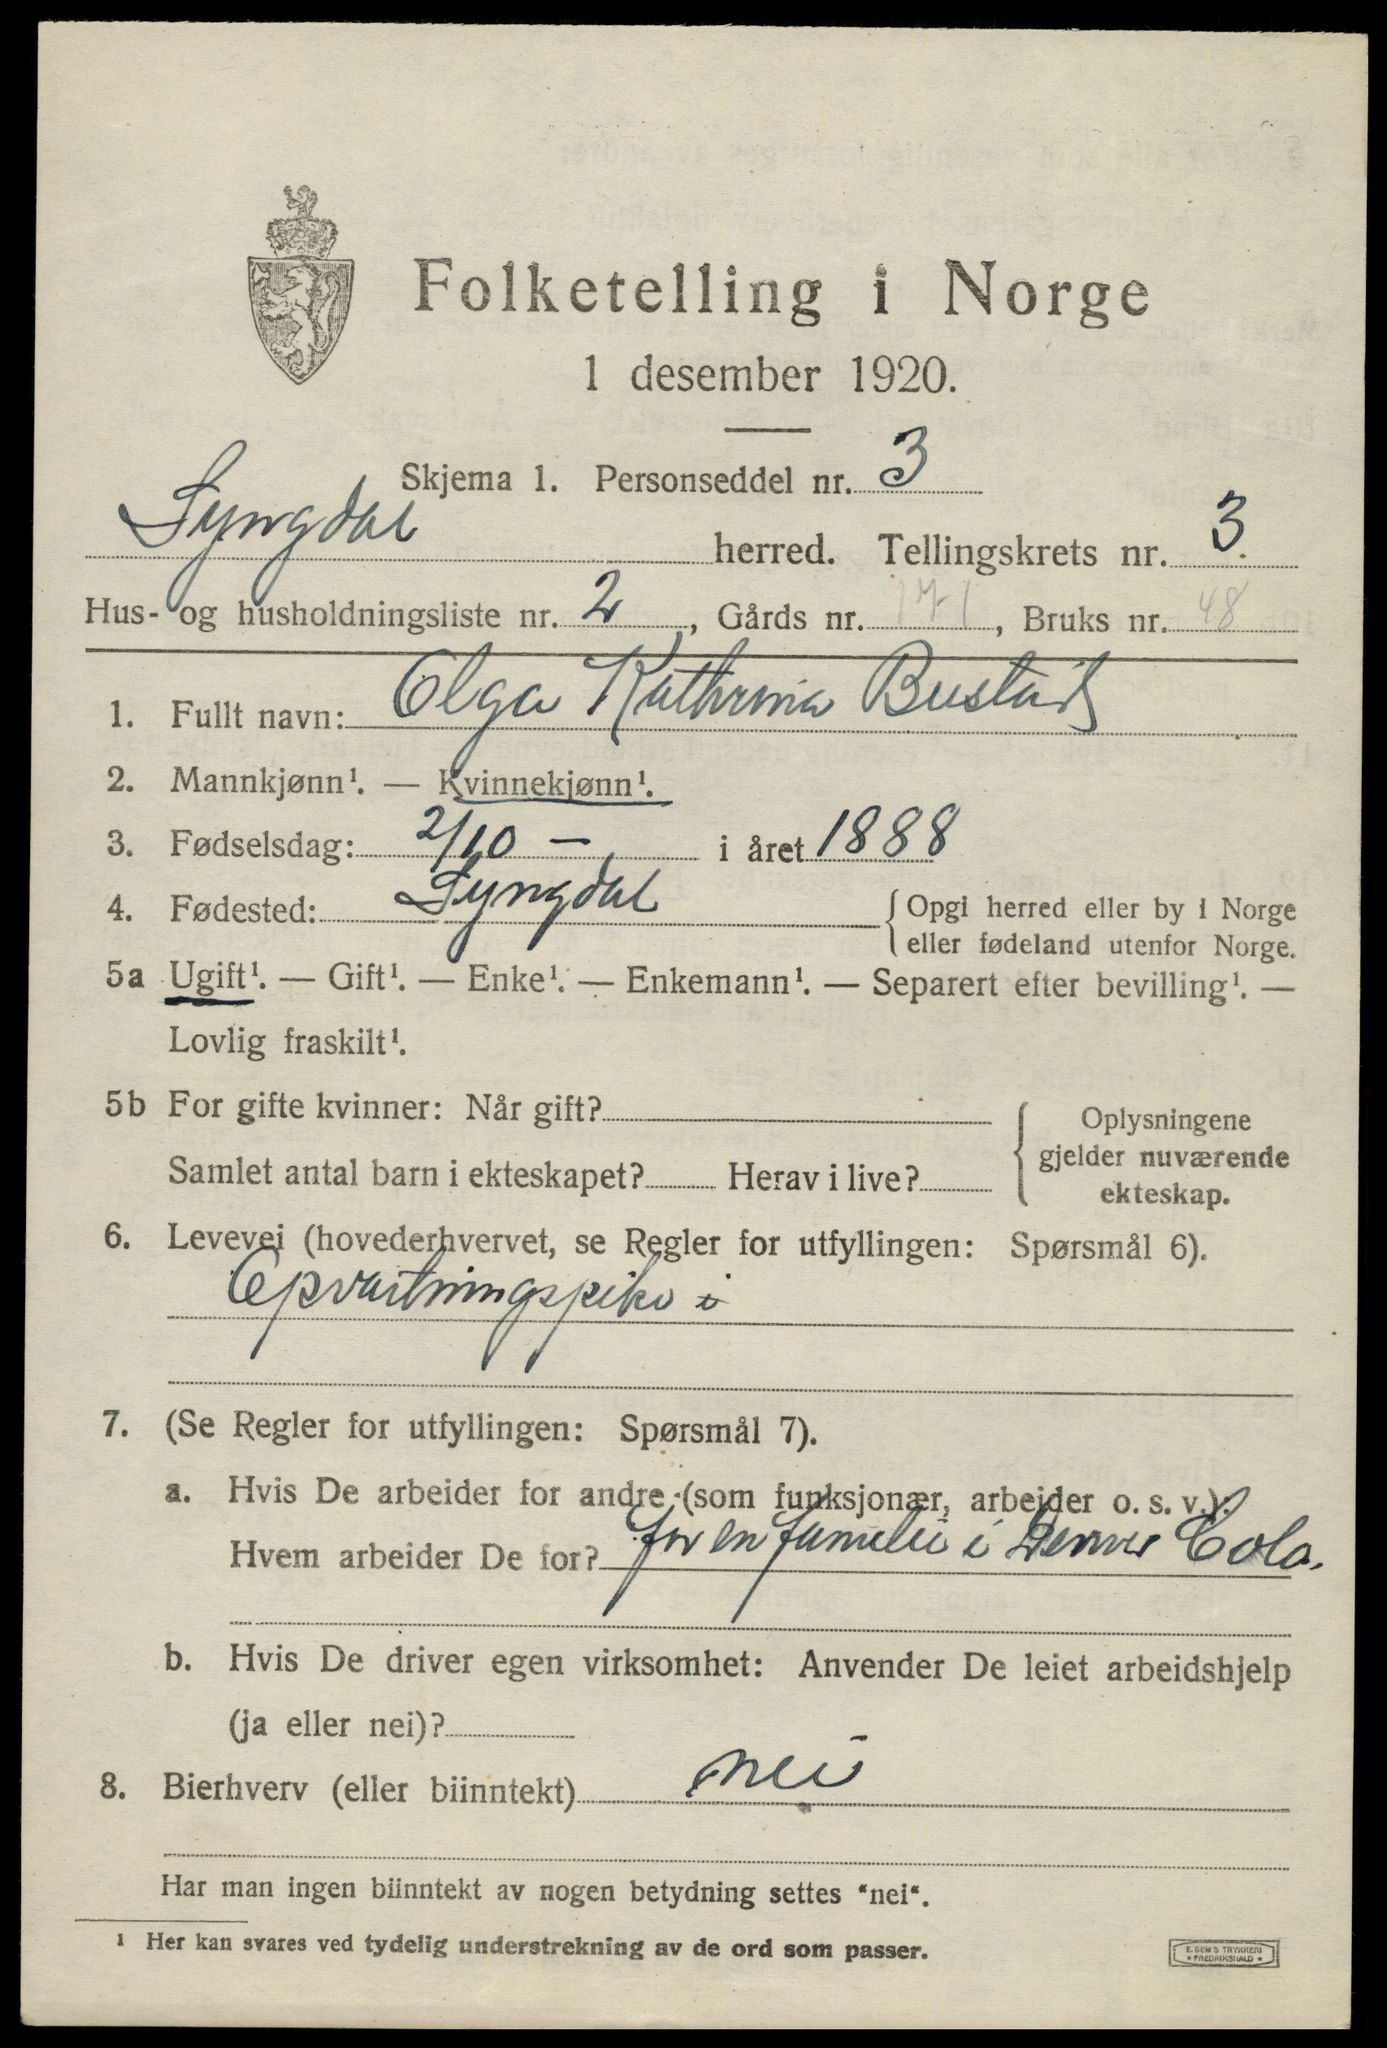 Folketelling i Norge
1 desember 1920.
Skjema 1. Personseddel nr. 3
Lyngdal herred. Tellingskrets nr. 3.
Hus- og husholdningsliste nr. 2, Gårds nr. 171, Bruks nr. 48
1. Fullt navn: Olga Kathrina Bustad
2. Mannkjønn¹. — Kvinnekjønn¹.
3. Fødselsdag: 2/10 — i året 1888
4. Fødested: Lyngdal { Opgi herred eller by i Norge
eller fødeland utenfor Norge.
5a Ugift¹. — Gift¹. — Enke¹. — Enkemann¹. — Separert efter bevilling¹. —
Lovlig fraskilt¹.
5b For gifte kvinner: Når gift? { Oplysningene
gjelder nuværende
ekteskap.
Samlet antal barn i ekteskapet? Herav i live?
6. Levevei (hovederhvervet, se Regler for utfyllingen: Spørsmål 6).
Opvartningspike i
7. (Se Regler for utfyllingen: Spørsmål 7).
a. Hvis De arbeider for andre (som funksjonær, arbeider o. s. v.).
Hvem arbeider De for? for en familie i Denver Colo.
b. Hvis De driver egen virksomhet: Anvender De leiet arbeidshjelp
(ja eller nei)?
8. Bierhverv (eller biinntekt) nei
Har man ingen biinntekt av nogen betydning settes "nei".
¹ Her kan svares ved tydelig understrekning av de ord som passer.
E. SEM'S TRYKKERI
* FREDRIKSHALD *